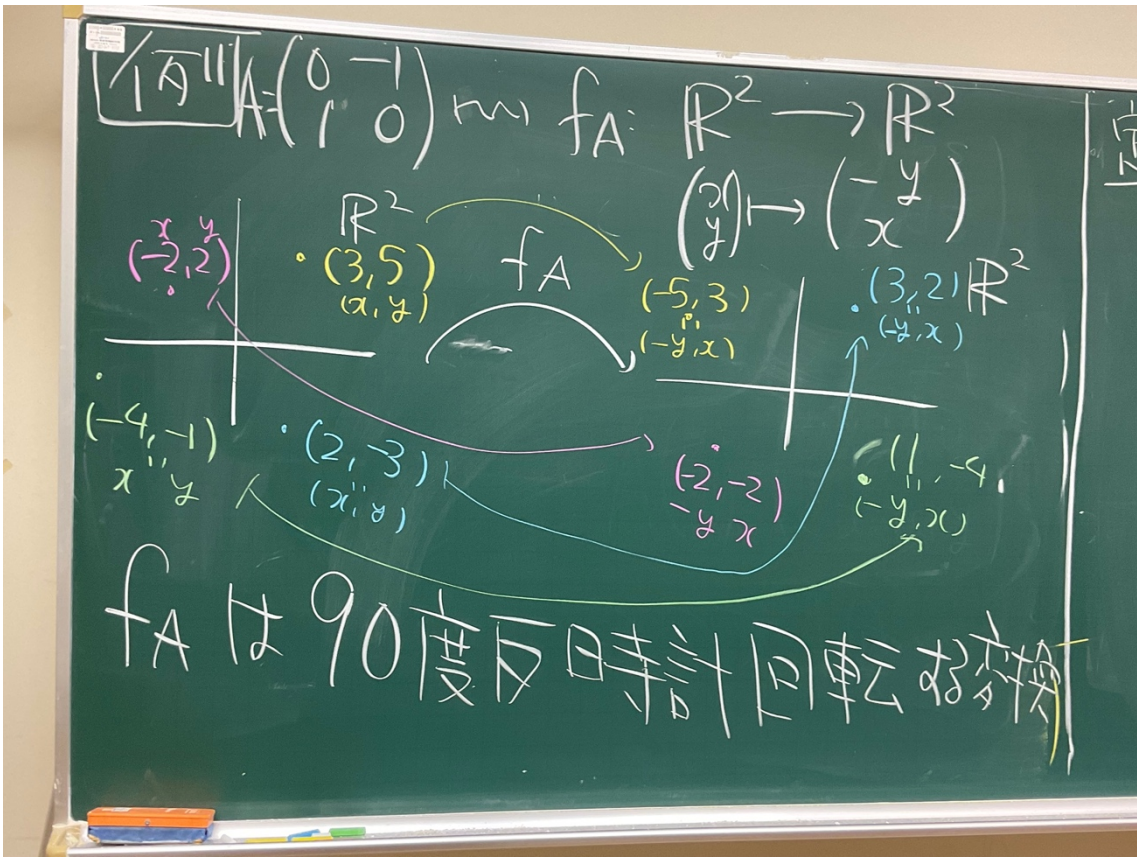 例 A=(0 -1 1 0) ⇝ f_A: ℝ² → ℝ²
(x y) ↦ (-y x)
ℝ²
x y
(-2, 2)
(3, 5)
(x, y)
f_A
(-5, 3)
(-y, x)
(3, 2) ℝ²
(-y, x)
(-4, -1)
x y
(2, -3)
(x, y)
(-2, -2)
-y x
(1, -4
(-y, x)
f_Aは90度反時計回転する変換